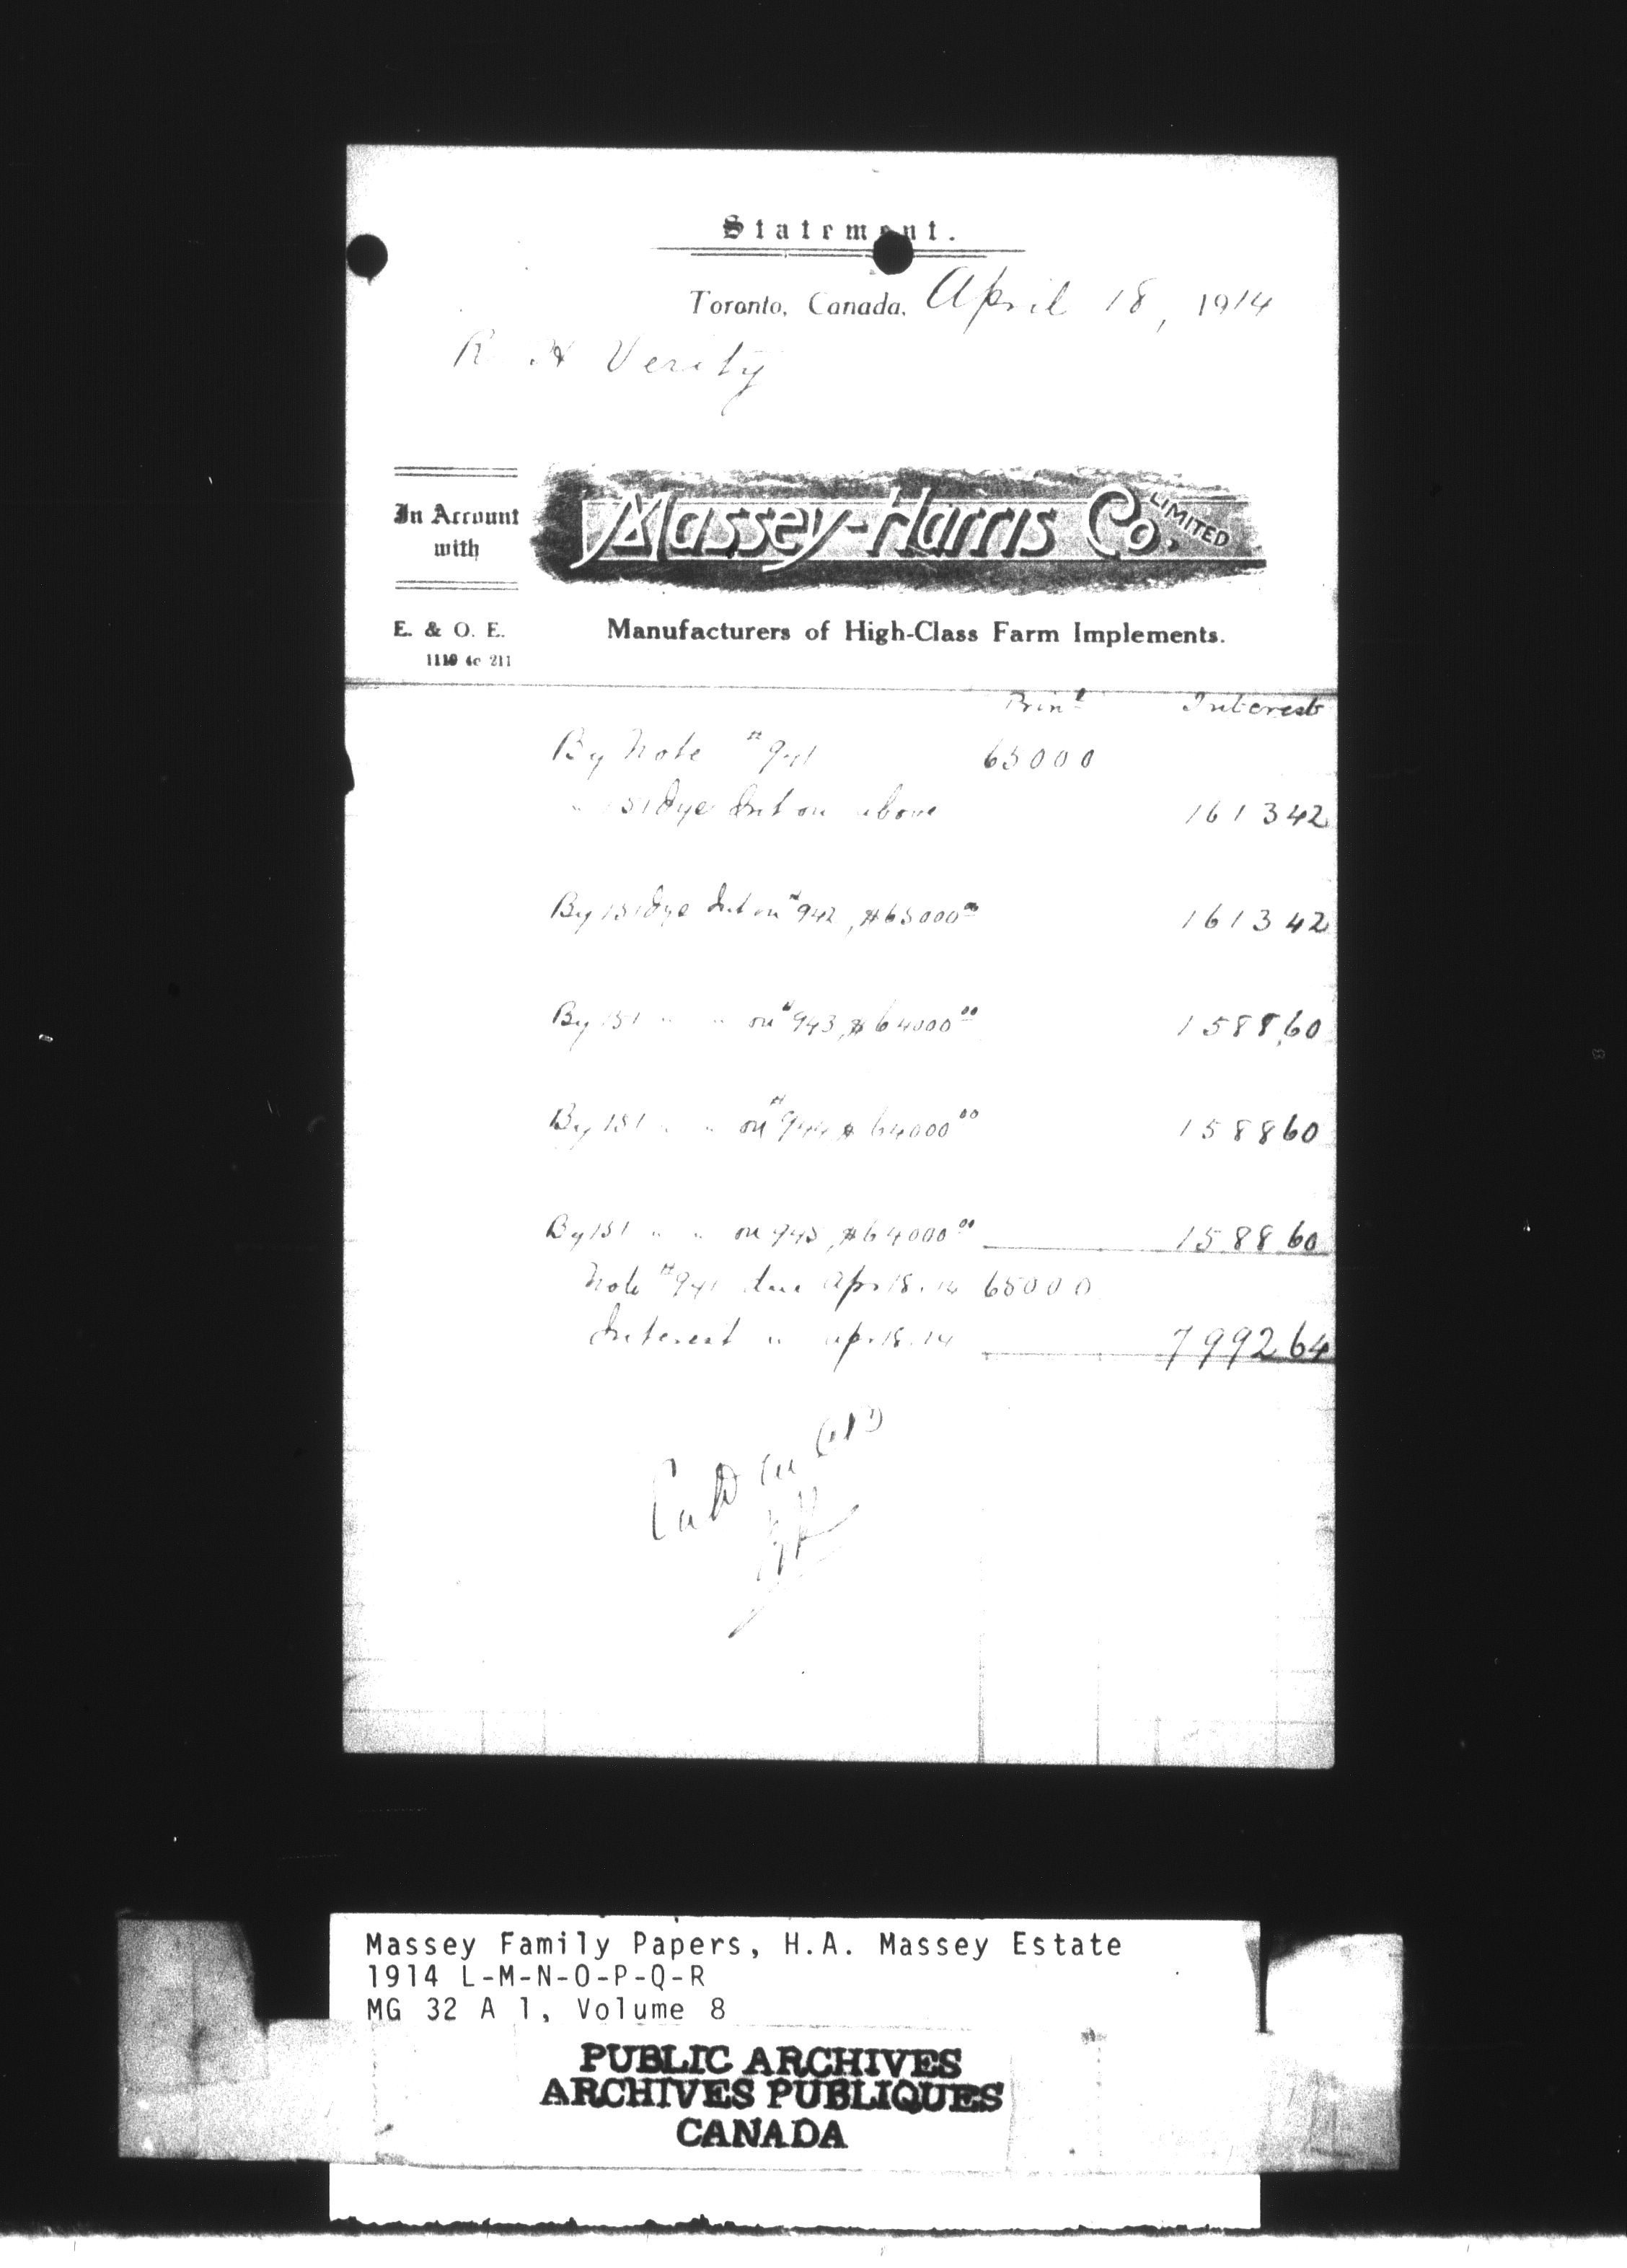 Statement.
Toronto, Canada, April 18, 1914
R H Verity
In Account
with
Massey-Harris Co. LIMITED
E. & O. E.
1110 4c 211
Manufacturers of High-Class Farm Implements.
Prinl Interest
By Note #941 65000
" 151 dys Int on above 1613 42
By 151 dys Int on #942, $65000 00 1613 42
By 151 " " on #943, $64000 00 1588 60
By 151 " " on #944 $64000 00 1588 60
By 151 " " on 945, $64000 00 1588 60
Note #941 due Apr 18. 14 65000
Interest " Apr. 18. 14 7992 64
Massey Family Papers, H.A. Massey Estate
1914 L-M-N-O-P-Q-R
MG 32 A 1, Volume 8
PUBLIC ARCHIVES
ARCHIVES PUBLIQUES
CANADA